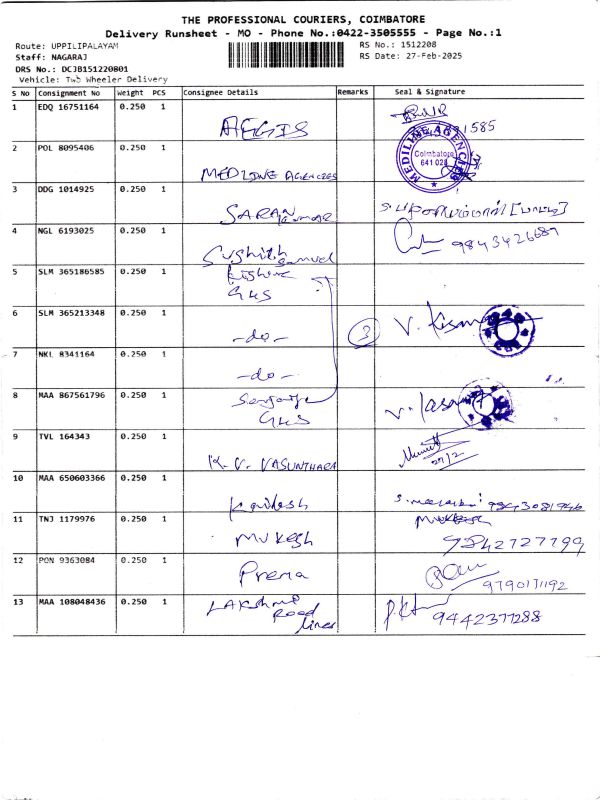 THE PROFESSIONAL COURIERS, COIMBATORE
Delivery Runsheet - MO - Phone No.:0422-3505555 - Page No.:1
Route: UPPILIPALAYAM
RS No.: 1512208
Staff: NAGARAJ
RS Date: 27-Feb-2025
DRS No.: DCJB151220801
Vehicle: Two Wheeler Delivery
S No Consignment No Weight PCS Consignee Details Remarks Seal & Signature
1 EDQ 16751164 0.250 1
AEGIS
2 POL 8095406 0.250 1
MEDLINE AGENCIES
MEDILINE AGENCIES
Coimbatore
641 028
3 DDG 1014925 0.250 1
SARAN Kumar
4 NGL 6193025 0.250 1
Sushith Samuel 9843426689
5 SLM 365186585 0.250 1
Kishore
GHS
6 SLM 365213348 0.250 1
-do- 3
7 NKL 8341164 0.250 1
-do-
8 MAA 867561796 0.250 1
GHS
9 TVL 164343 0.250 1
K. V. VASUNTHARA 27/2
10 MAA 650603366 0.250 1
Kavilesh
11 TNJ 1179976 0.250 1
Mukesh 9842727799
12 PON 9363084 0.250 1
Prema 9790171192
13 MAA 108048436 0.250 1
Lakshmi Road lines 9442377288